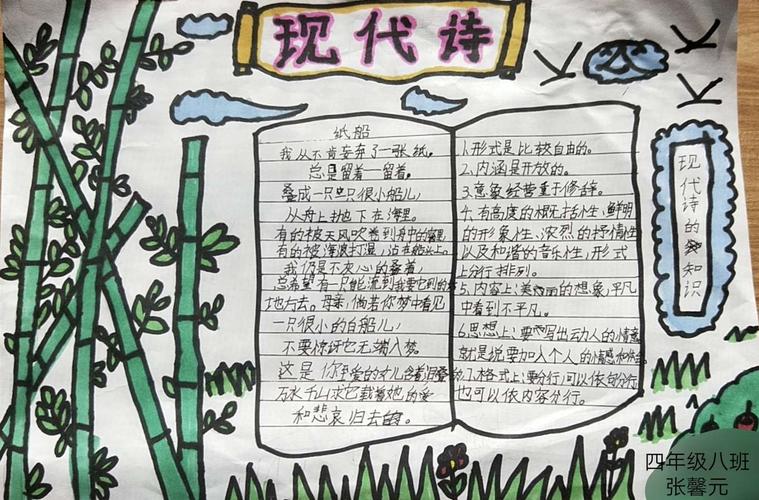 现代诗
纸船
我从不肯妄弃了一张纸。
总是留着一留着。
叠成一只只很小船儿，
从舟上抛下在海里。
有的被天风吹卷到舟中的窗里
有的被海浪打湿，沾在船头上。
我仍是不灰心的叠着，
总希望有一只能流到我要它到的
地方去。母亲，倘若你梦中看见
一只很小的白船儿，
不要惊讶它无端入梦。
这是你至爱的女儿含着泪叠的
万水千山求它载着她的爱
和悲哀归去。
1.形式是比较自由的。
2、内涵是开放的。
3、意象经营重于修辞。
4、有高度的概括性，鲜明
的形象性，浓烈的抒情性
以及和谐的音乐性，形式
上分行排列。
5、内容上：美的想象，平凡
中看到不平凡。
6.思想上：要写出动人的情意
就是说要加入个人的情感和
7.格式上：要分行，可以依句分行
也可以依内容分行。
现代诗的知识
四年级八班
张馨元